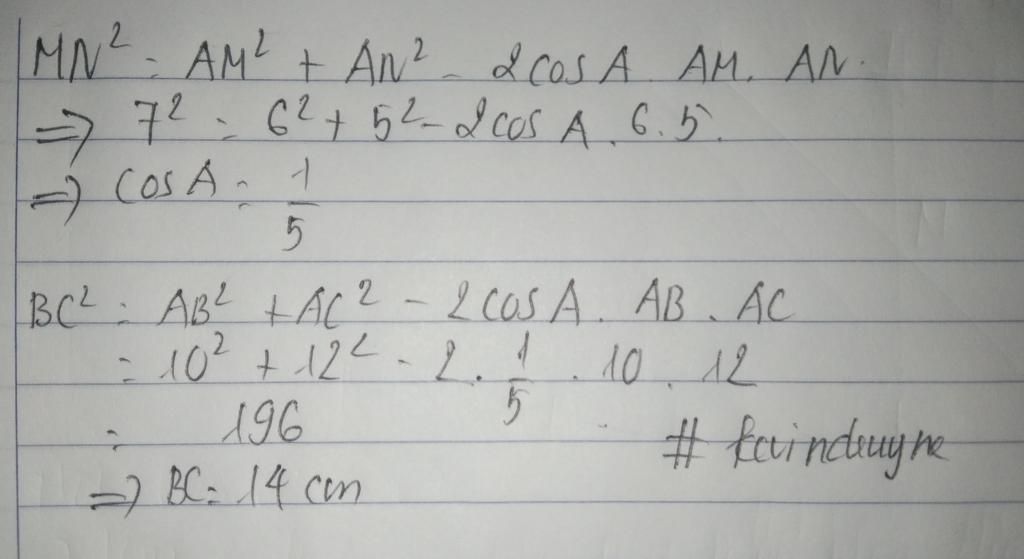 MN² = AM² + AN² - 2cosA. AM. AN.
=> 7² = 6² + 5² - 2cos A. 6.5.
=> cosA = 1/5
BC² = AB² + AC² - 2cosA. AB. AC
= 10² + 12² - 2. 1/5 . 10. 12
= 196
=> BC = 14 cm
#